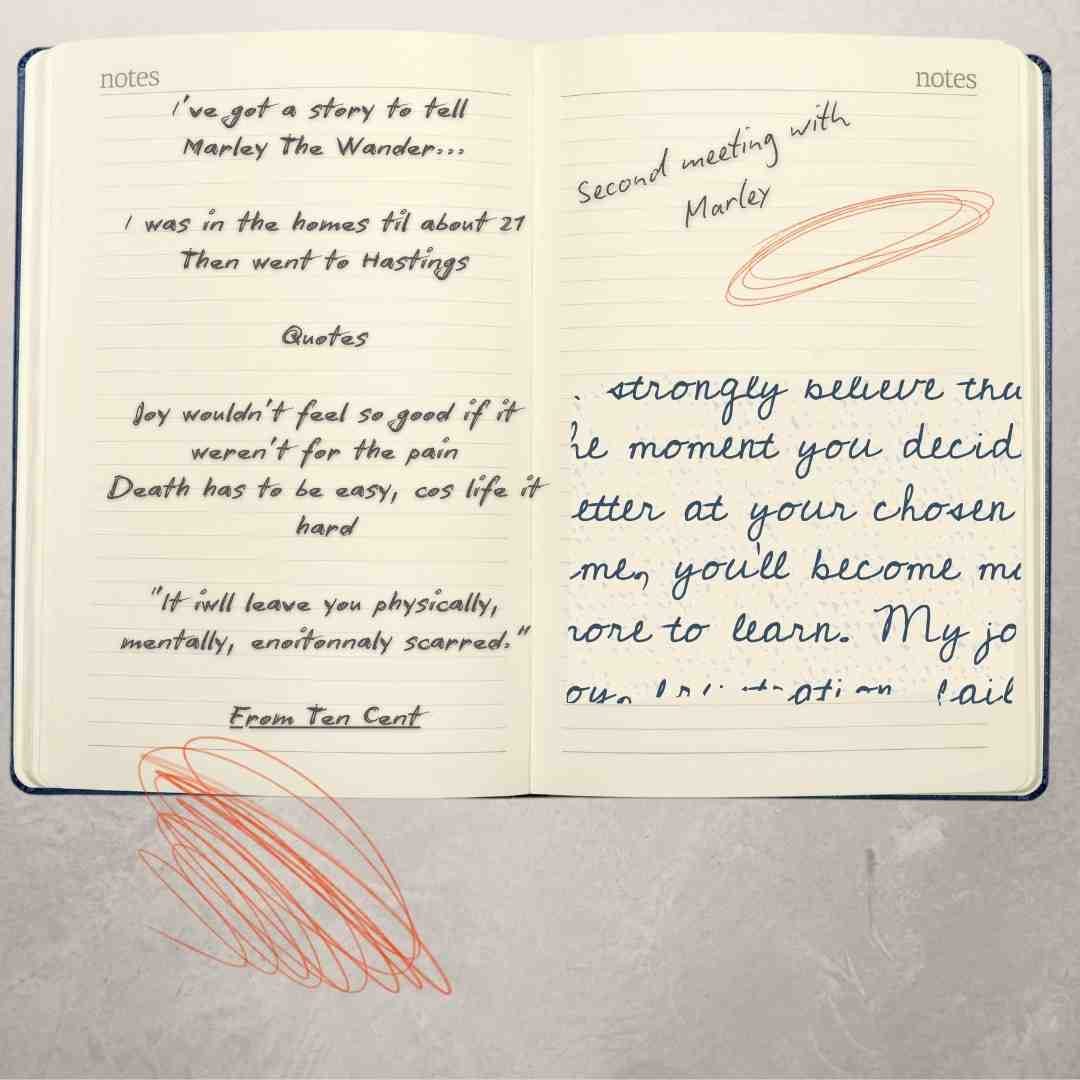 notes
I've got a story to tell
Marley The Wander...
I was in the homes til about 21
Then went to Hastings
Quotes
Joy wouldn't feel so good if it
weren't for the pain
Death has to be easy, cos life it
hard
"It iwll leave you physically,
mentally, enoitonnaly scarred."
From Ten Cent
notes
Second meeting with
Marley
strongly believe
he moment you decid
etter at your chosen
me, you'll become
more to learn. My jo